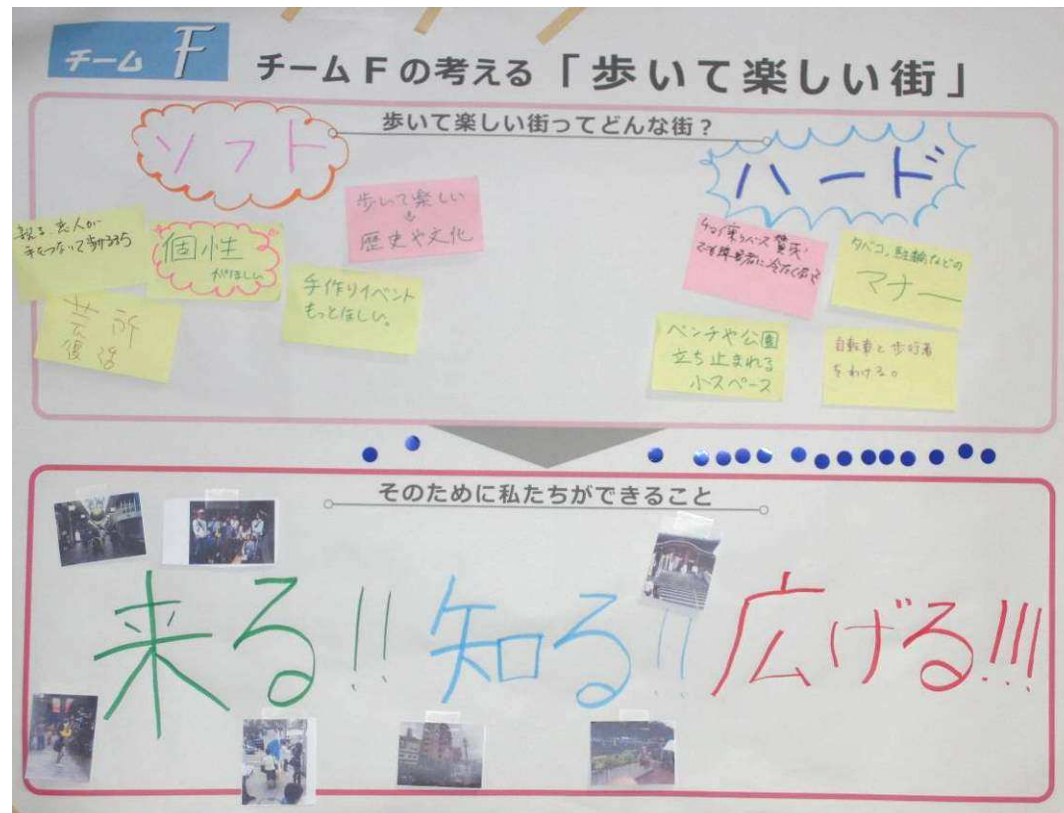 チーム F
チームFの考える「歩いて楽しい街」
歩いて楽しい街ってどんな街？
ソフト
ハード
恋人が
手をつないで歩けるまち
個性
がほしい
歩いて楽しい
↓
歴史や文化
芸
復活
手作りイベント
もっとほしい。
賛成・
タバコ、駐輪などの
マナー
ベンチや公園
立ち止まれる
小スペース
自転車と歩行者
をわける。
そのために私たちができること
来る!! 知る!! 広げる!!!